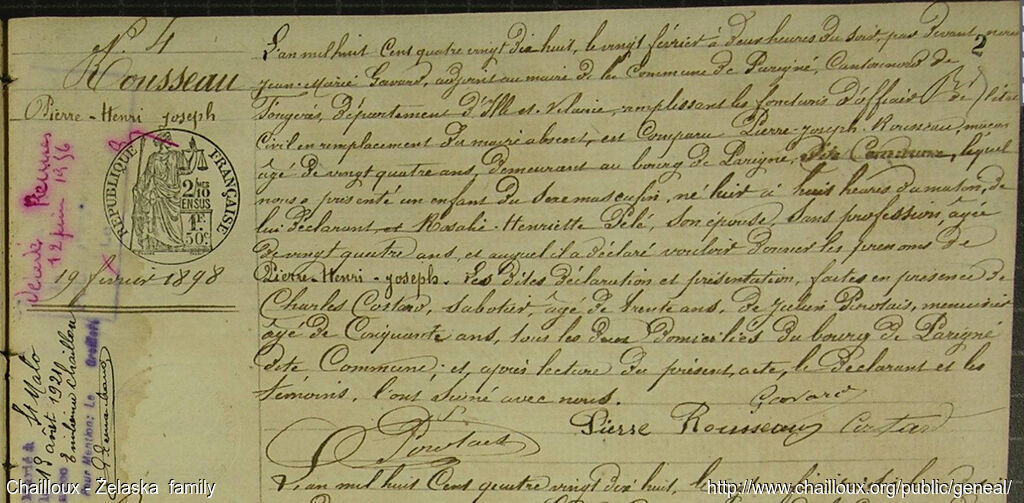 N° 4
Rousseau
Pierre - Henri Joseph
RÉPUBLIQUE FRANÇAISE
2/10 EN SUS
1F.
50c
19 février 1898
Décédé Rennes
12 juin 1956
St Malo
19 août 1924
Chaillou
Pour Mention: Le Greffier
2
L'an mil huit Cent quatre vingt dix huit, le vingt février à deux heures du soir, par devant nous
Jean-Marie Gavard, adjoint au maire de la Commune de Parigné, Canton nord de
Fougères, département d'Ille et Vilaine, remplissant les fonctions d'officier de l'état
Civil en remplacement du maire absent, est Comparu Pierre-Joseph Rousseau, maçon
âgé de vingt quatre ans, demeurant au bourg de Parigné, dite Commune, lequel
nous a présenté un enfant du sexe masculin, né hier à huit heures du matin, de
lui déclarant, et Rosalie-Henriette Pélé, son épouse, sans profession, âgée
de vingt quatre ans, et auquel il a déclaré vouloir donner les prénoms de
Pierre-Henri-Joseph. Les dites déclaration et présentation, faites en présence de
Charles Costard, sabotier, âgé de trente ans, de Julien Pirotais, menuisier
âgé de Cinquante ans, tous les deux domiciliés du bourg de Parigné
dite Commune; et, après lecture du présent acte, le déclarant et les
témoins, l'ont signé avec nous.
Gavard
Pierre Rousseau Costard
Pirotais
L'an mil huit Cent quatre vingt dix huit, le
Chailloux - Żelaska family
http://www.chailloux.org/public/geneal/